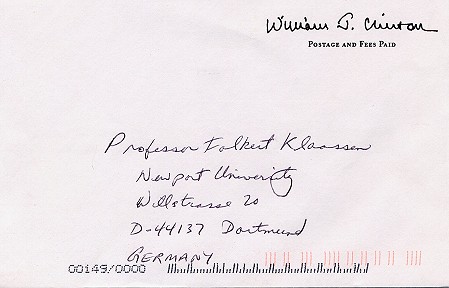 William J. Clinton
POSTAGE AND FEES PAID
Professor Folkert Klaassen
Newport University
Willstrasse 20
D-44137 Dortmund
GERMANY
00149/0000